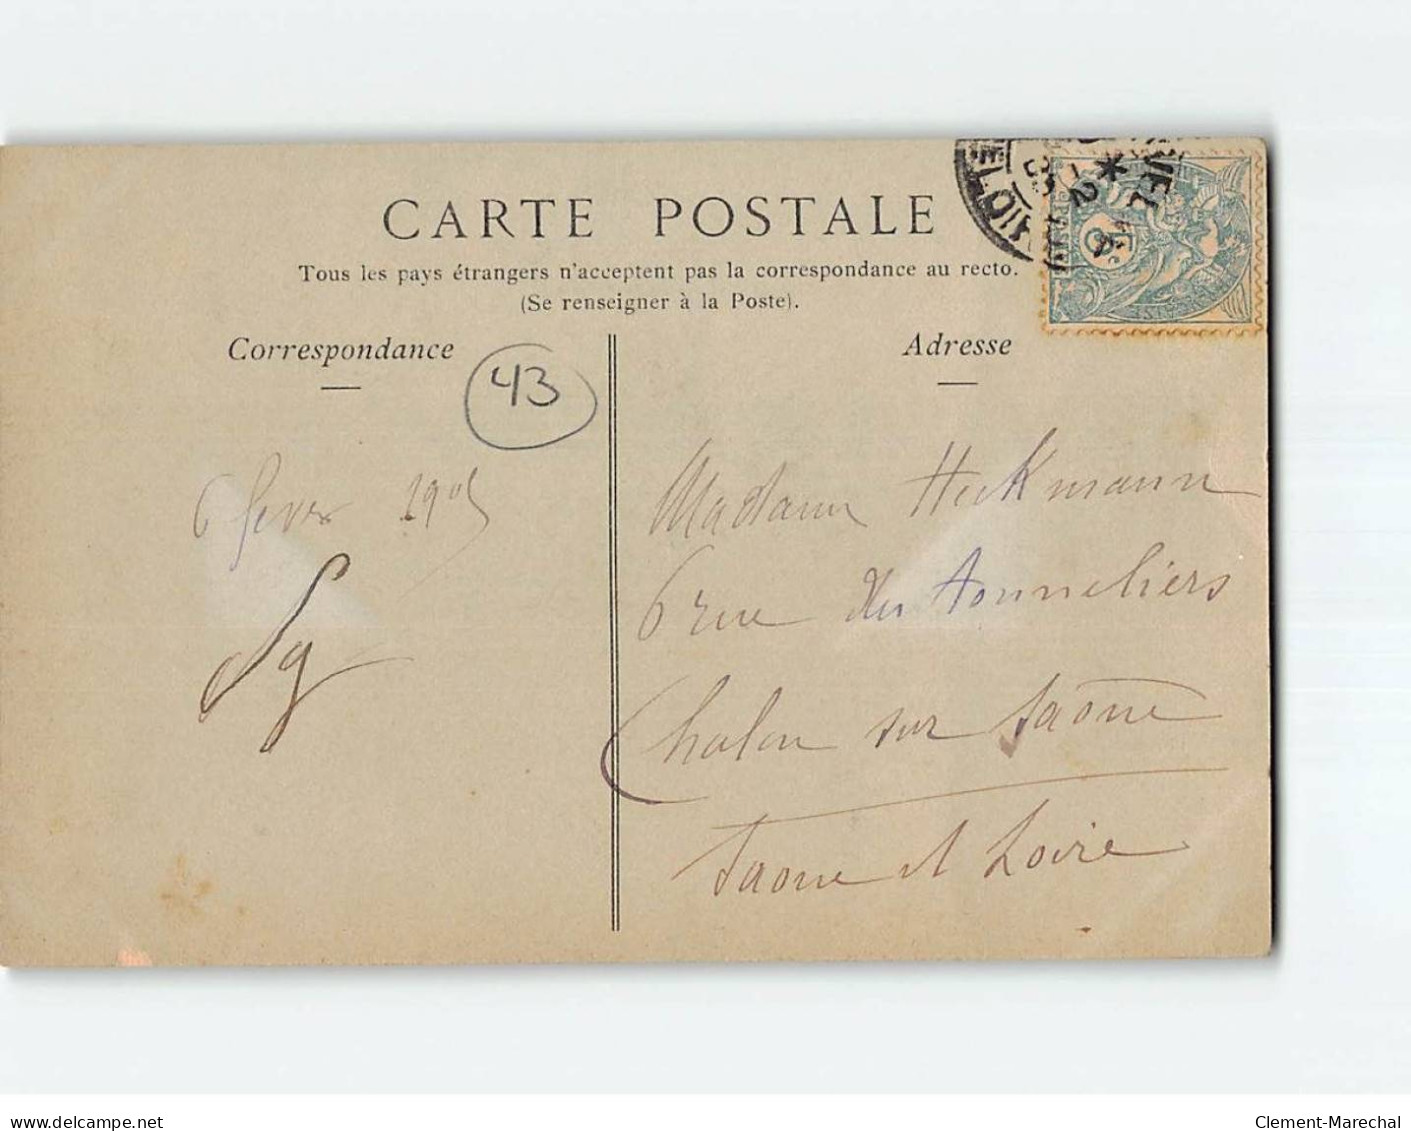 CARTE POSTALE
Tous les pays étrangers n'acceptent pas la correspondance au recto.
(Se renseigner à la Poste).
Correspondance
Adresse
43
6 fever 1905
Madame Heckmann
6 rue des Tonneliers
Chalon sur Saône
Saone et Loire
delcampe.net
Clement-Marechal